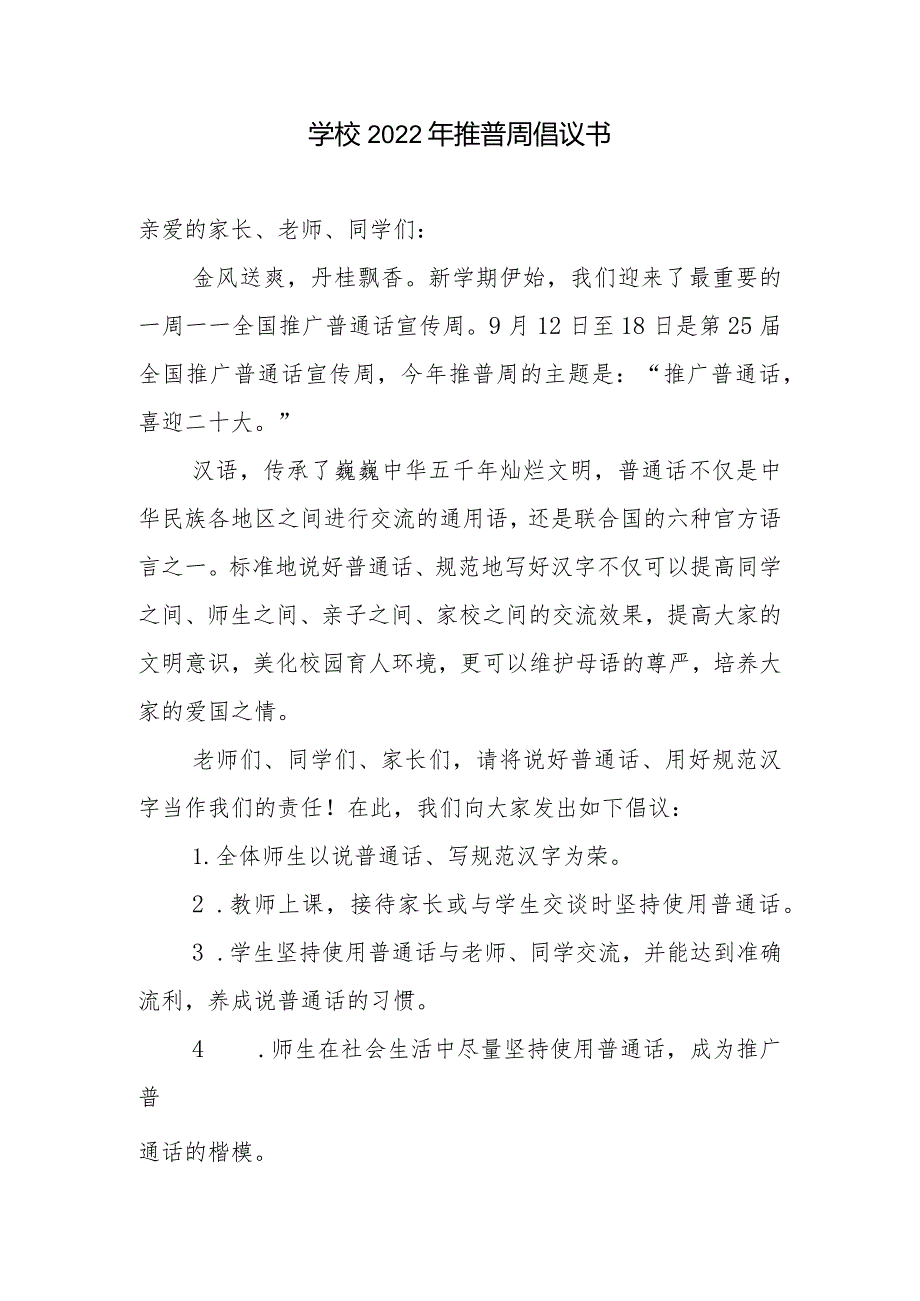 学校2022年推普周倡议书
亲爱的家长、老师、同学们：
金风送爽，丹桂飘香。新学期伊始，我们迎来了最重要的
一周一一全国推广普通话宣传周。9月12日至18日是第25届
全国推广普通话宣传周，今年推普周的主题是：“推广普通话，
喜迎二十大。”
汉语，传承了巍巍中华五千年灿烂文明，普通话不仅是中
华民族各地区之间进行交流的通用语，还是联合国的六种官方语
言之一。标准地说好普通话、规范地写好汉字不仅可以提高同学
之间、师生之间、亲子之间、家校之间的交流效果，提高大家的
文明意识，美化校园育人环境，更可以维护母语的尊严，培养大
家的爱国之情。
老师们、同学们、家长们，请将说好普通话、用好规范汉
字当作我们的责任！在此，我们向大家发出如下倡议：
1.全体师生以说普通话、写规范汉字为荣。
2 .教师上课，接待家长或与学生交谈时坚持使用普通话。
3 .学生坚持使用普通话与老师、同学交流，并能达到准确
流利，养成说普通话的习惯。
4 .师生在社会生活中尽量坚持使用普通话，成为推广
普
通话的楷模。